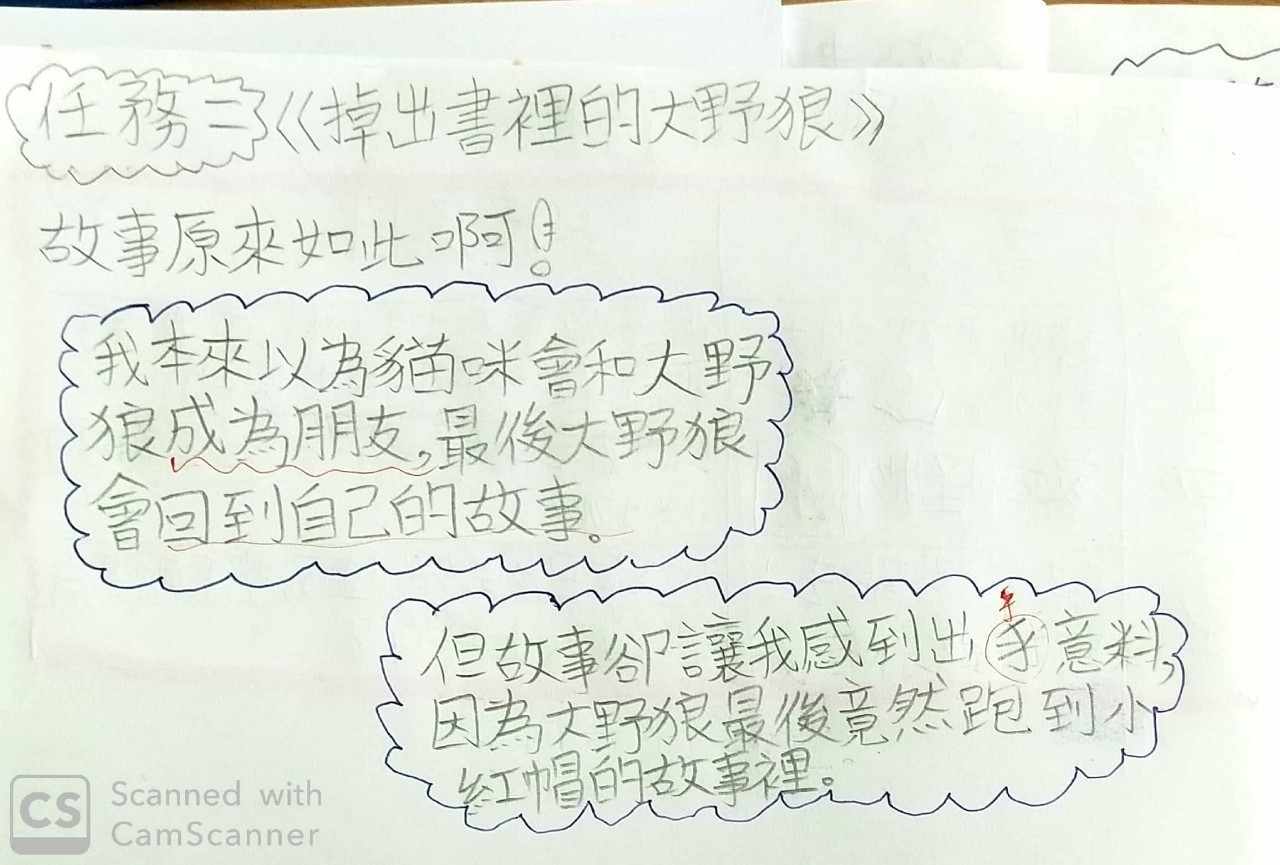 任務二《掉出書裡的大野狼》
故事原來如此啊!
我本來以為貓咪會和大野
狼成為朋友,最後大野狼
會回到自己的故事。
但故事卻讓我感到出 意料,
乎
因為大野狼最後竟然跑到小
紅帽的故事裡。
CS Scanned with
CamScanner